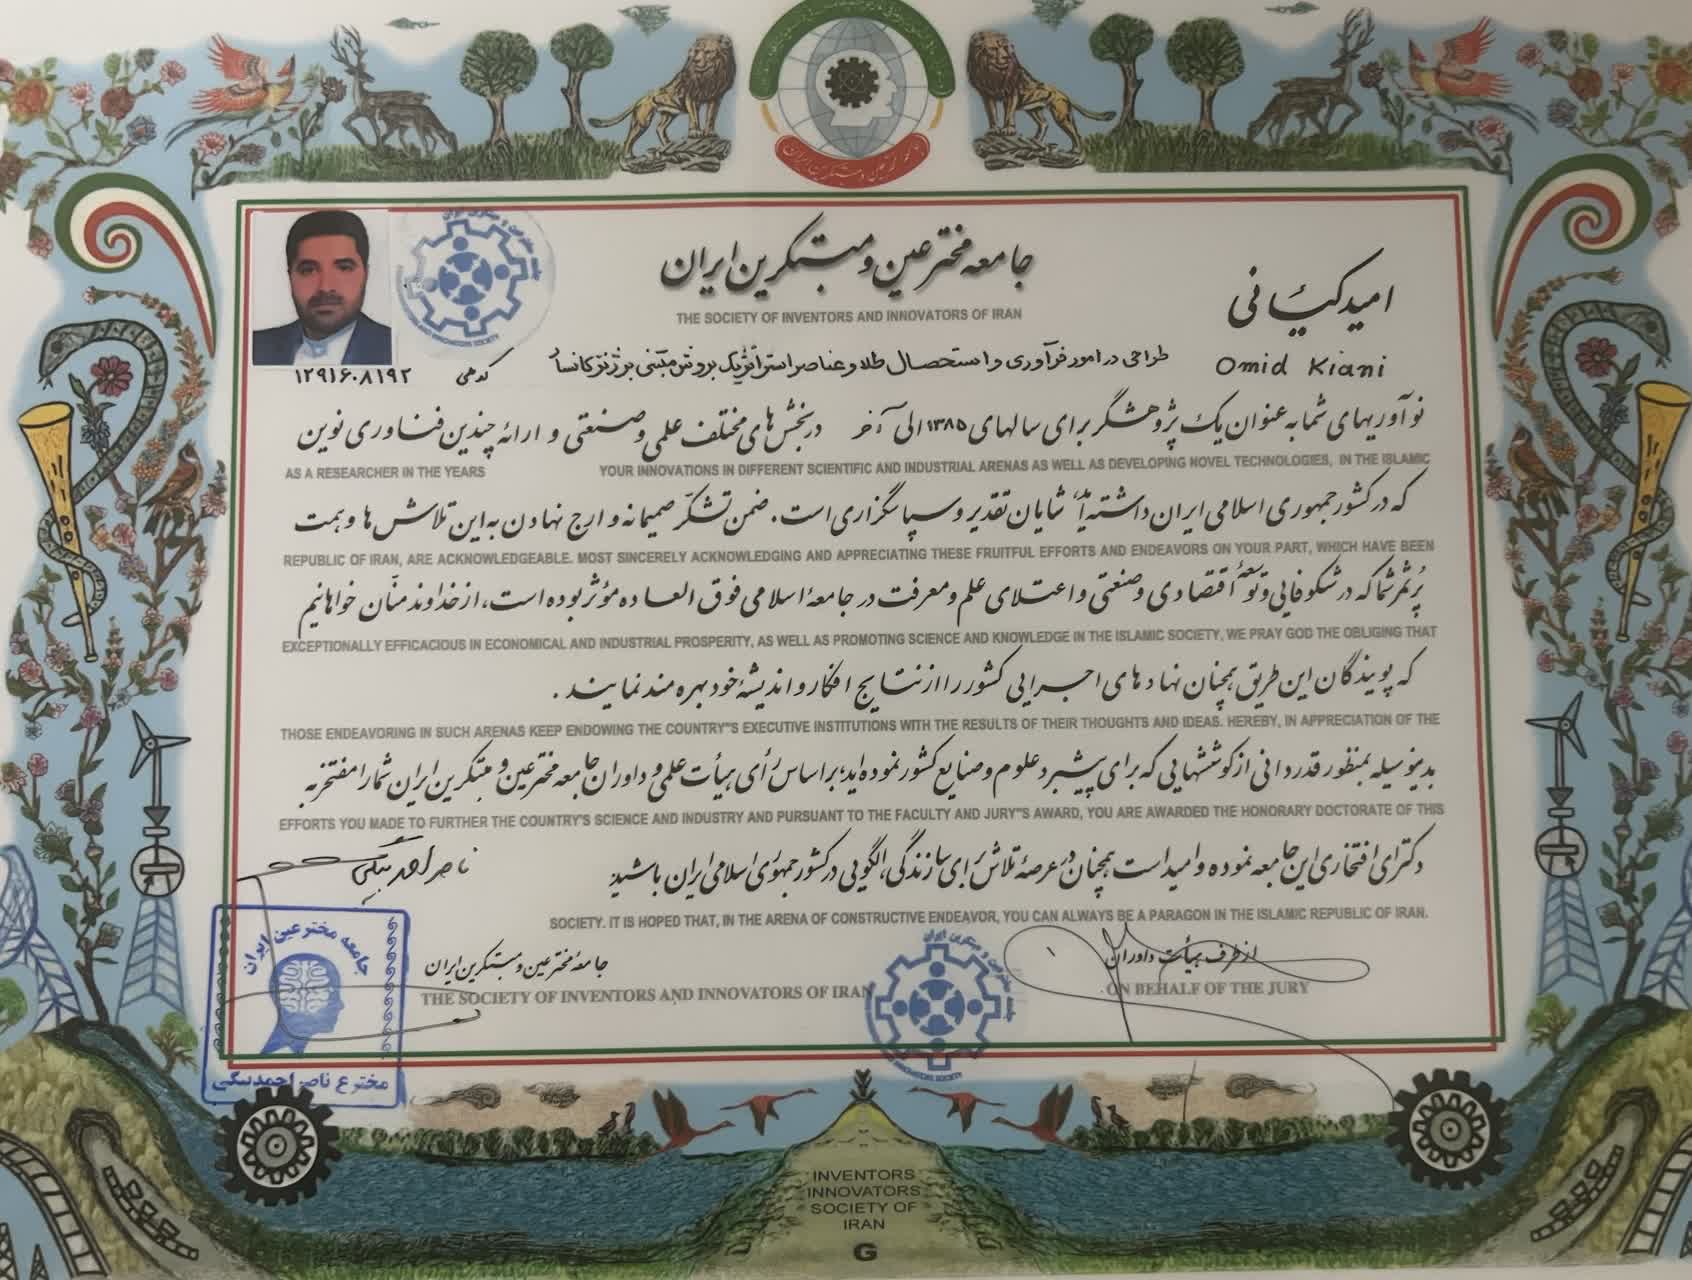 جامعه مخترعین و مبتکرین ایران
THE SOCIETY OF INVENTORS AND INNOVATORS OF IRAN
امید کیانی
Omid Kiani
طراحی در امور فرآوری و استحصال طلا و عناصر استراتژیک بروش مبتنی بر
کد ملی ۱۲۹۱۶۰۸۱۹۲
نوآوریهای شما به عنوان یک پژوهشگر برای سالهای ۱۳۸۵ الی آخر در بخش های مختلف علمی و صنعتی و ارائه چندین فناوری نوین
AS A RESEARCHER IN THE YEARS YOUR INNOVATIONS IN DIFFERENT SCIENTIFIC AND INDUSTRIAL ARENAS AS WELL AS DEVELOPING NOVEL TECHNOLOGIES, IN THE ISLAMIC
که در کشور جمهوری اسلامی ایران داشته‌اید شایان تقدیر و سپاسگزاری است. ضمن تشکّر صمیمانه و ارج نهادن به این تلاش ها و همت
REPUBLIC OF IRAN, ARE ACKNOWLEDGEABLE. MOST SINCERELY ACKNOWLEDGING AND APPRECIATING THESE FRUITFUL EFFORTS AND ENDEAVORS ON YOUR PART, WHICH HAVE BEEN
پُرثمر شما که در شکوفایی و توسعۀ اقتصادی و صنعتی و اعتلای علم و معرفت در جامعۀ اسلامی فوق العاده مؤثر بوده است، از خداوند منّان خواهانیم
EXCEPTIONALLY EFFICACIOUS IN ECONOMICAL AND INDUSTRIAL PROSPERITY, AS WELL AS PROMOTING SCIENCE AND KNOWLEDGE IN THE ISLAMIC SOCIETY, WE PRAY GOD THE OBLIGING THAT
که پویندگان این طریق همچنان نهادهای اجرایی کشور را از نتایج افکار و اندیشۀ خود بهره مند نمایند.
THOSE ENDEAVORING IN SUCH ARENAS KEEP ENDOWING THE COUNTRY"S EXECUTIVE INSTITUTIONS WITH THE RESULTS OF THEIR THOUGHTS AND IDEAS. HEREBY, IN APPRECIATION OF THE
بدینوسیله بمنظور قدردانی از کوششهایی که برای پیشبرد علوم و صنایع کشور نموده اید؛ براساس رأی هیأت علمی و داوران جامعه مخترعین و مبتکرین ایران شما را مفتخر به
EFFORTS YOU MADE TO FURTHER THE COUNTRY'S SCIENCE AND INDUSTRY AND PURSUANT TO THE FACULTY AND JURY"S AWARD, YOU ARE AWARDED THE HONORARY DOCTORATE OF THIS
دکترای افتخاری این جامعه نموده و امید است همچنان در عرصۀ تلاش برای سازندگی، الگویی در کشور جمهوری اسلامی ایران باشید.
SOCIETY. IT IS HOPED THAT, IN THE ARENA OF CONSTRUCTIVE ENDEAVOR, YOU CAN ALWAYS BE A PARAGON IN THE ISLAMIC REPUBLIC OF IRAN.
از طرف هیأت داوران
ON BEHALF OF THE JURY
ناصر احمدبیگی
جامعۀ مخترعین و مبتکرین ایران
THE SOCIETY OF INVENTORS AND INNOVATORS OF IRAN
جامعه مخترعین ایران
مخترع ناصر احمدبیگی
INVENTORS
INNOVATORS
SOCIETY OF
IRAN
G